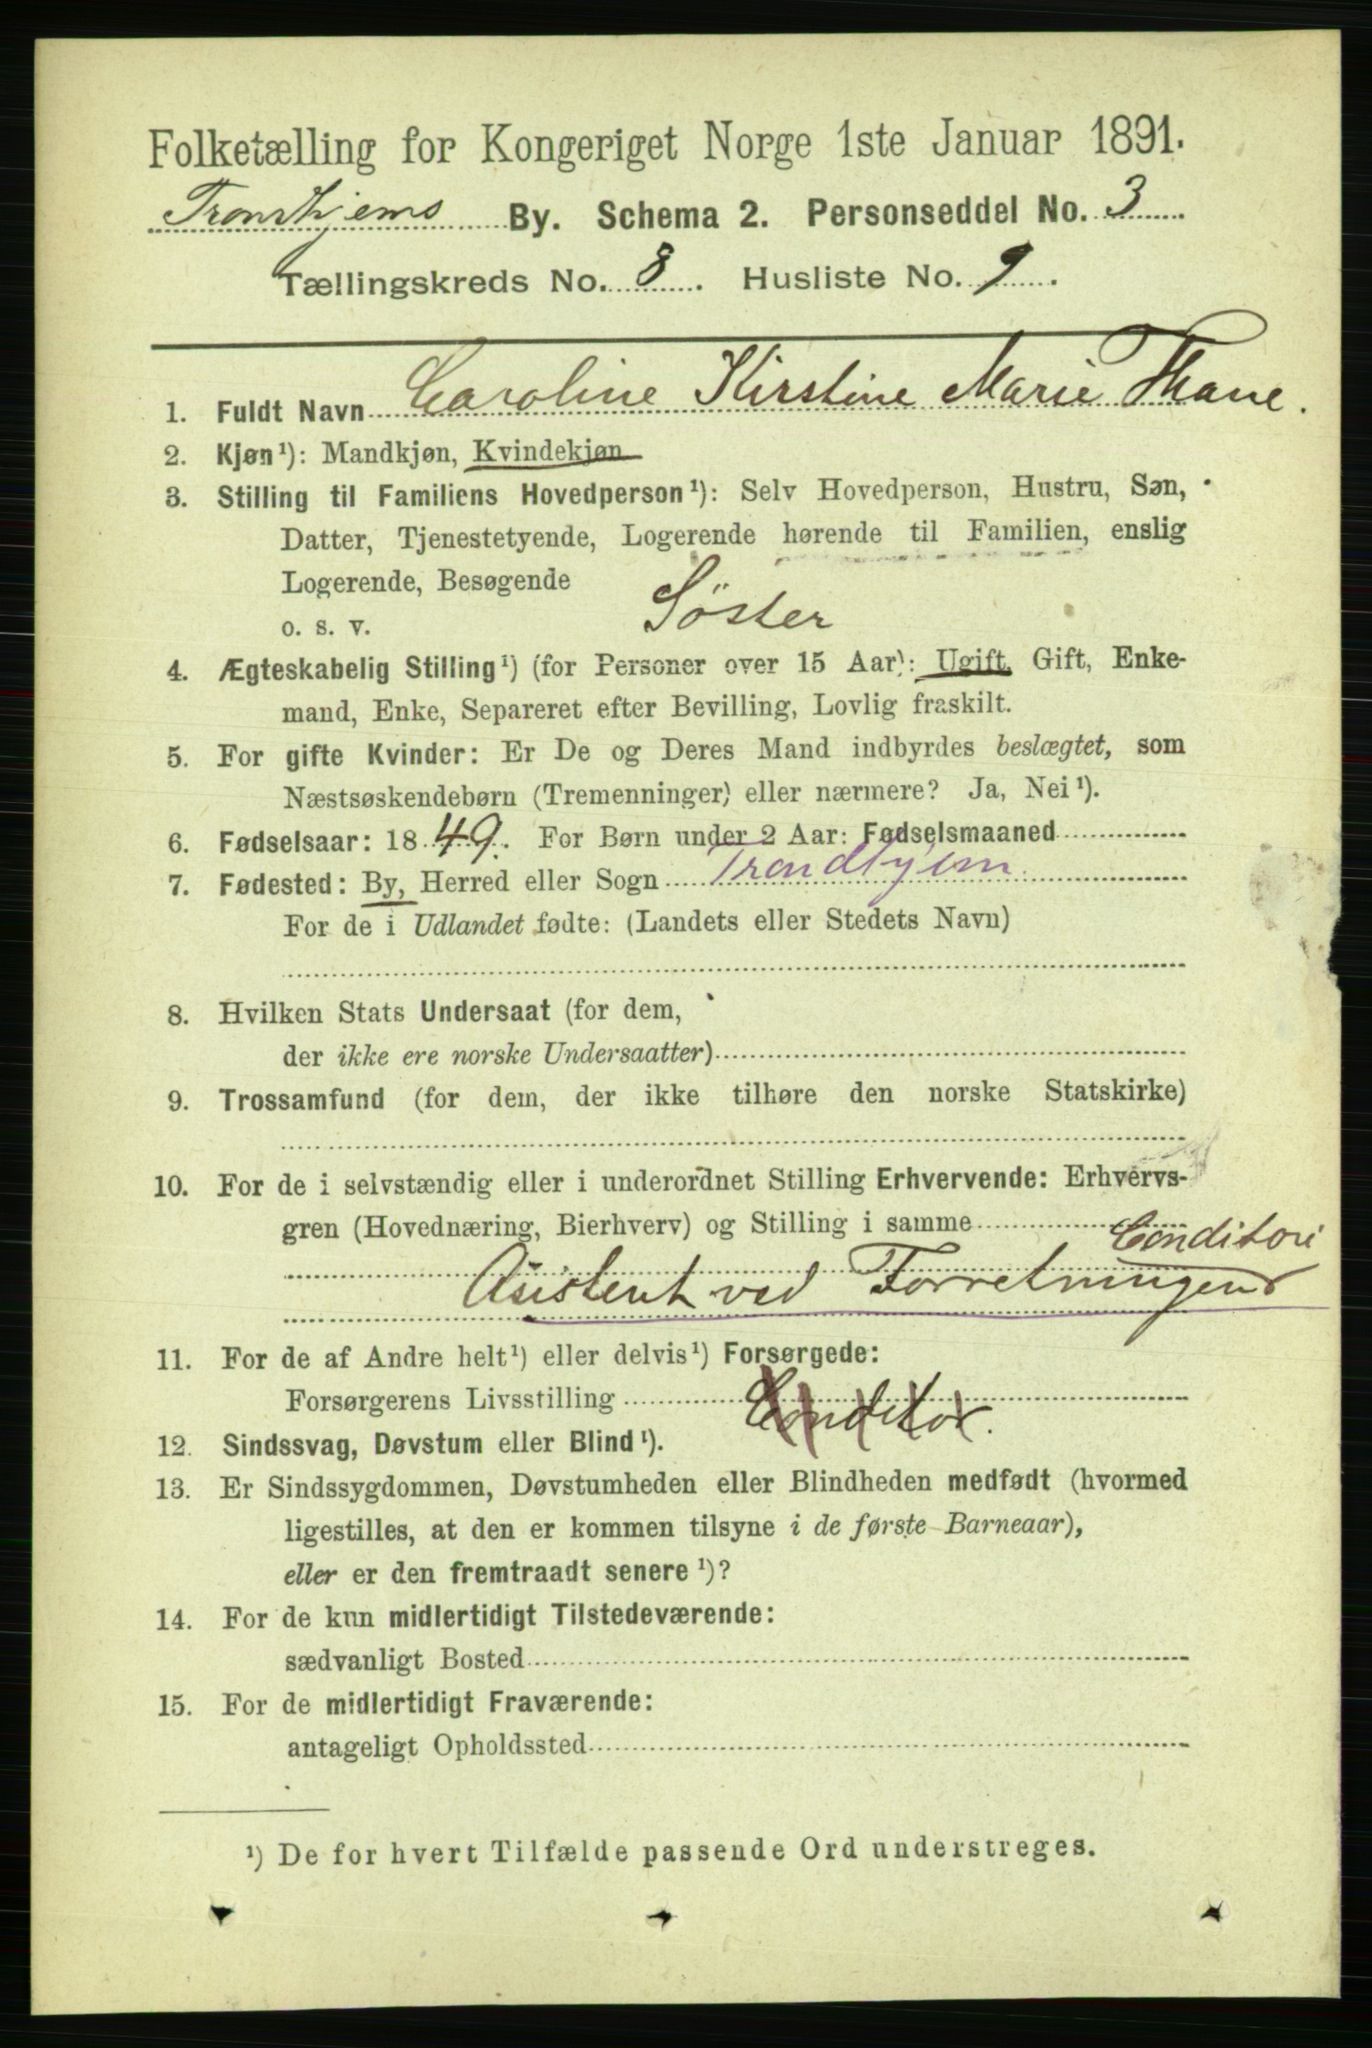 Folketælling for Kongeriget Norge 1ste Januar 1891.
Trondhjems By. Schema 2. Personseddel No. 3
Tællingskreds No. 8. Husliste No. 9.
1. Fuldt Navn Caroline Kirstine Marie Thane.
2. Kjøn¹): Mandkjøn, Kvindekjøn
3. Stilling til Familiens Hovedperson¹): Selv Hovedperson, Hustru, Søn,
Datter, Tjenestetyende, Logerende hørende til Familien, enslig
Logerende, Besøgende
o. s. v. Søster
4. Ægteskabelig Stilling¹) (for Personer over 15 Aar): Ugift, Gift, Enke-
mand, Enke, Separeret efter Bevilling, Lovlig fraskilt.
5. For gifte Kvinder: Er De og Deres Mand indbyrdes beslægtet, som
Næstsøskendebørn (Tremenninger) eller nærmere? Ja, Nei¹).
6. Fødselsaar: 1849. For Børn under 2 Aar: Fødselsmaaned
7. Fødested: By, Herred eller Sogn Trondhjem
For de i Udlandet fødte: (Landets eller Stedets Navn)
8. Hvilken Stats Undersaat (for dem,
der ikke ere norske Undersaatter)
9. Trossamfund (for dem, der ikke tilhøre den norske Statskirke)
10. For de i selvstændig eller i underordnet Stilling Erhvervende: Erhvervs-
gren (Hovednæring, Bierhverv) og Stilling i samme Conditori
Asistent ved Forretningen
11. For de af Andre helt¹) eller delvis¹) Forsørgede:
Forsørgerens Livsstilling Conditor.
12. Sindssvag, Døvstum eller Blind¹).
13. Er Sindssygdommen, Døvstumheden eller Blindheden medfødt (hvormed
ligestilles, at den er kommen tilsyne i de første Barneaar),
eller er den fremtraadt senere¹)?
14. For de kun midlertidigt Tilstedeværende:
sædvanligt Bosted
15. For de midlertidigt Fraværende:
antageligt Opholdssted
¹) De for hvert Tilfælde passende Ord understreges.